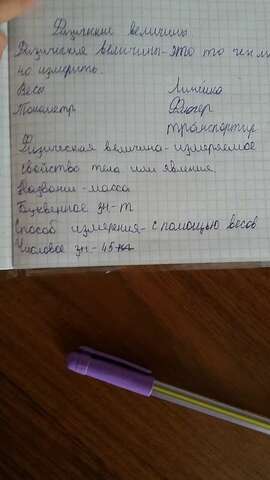 Физические величины
Физические величины - это то чем мож
но измерить.
Весы Линейка
Тонометр
транспортир
Физическая величина - измеряемое
свойство тела или явления
Название - масса
Буквенное зн - m
Способ измерения - с помощью весов
Числовое зн - 45 кг